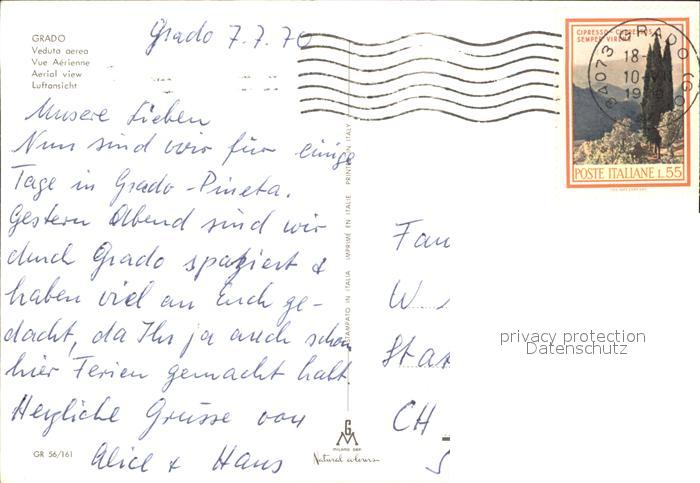 GRADO
Veduta aerea
Vue Aérienne
Aerial view
Luftansicht
Grado 7.7.70
Unsere Lieben
Nun sind wir für einige
Tage in Grado-Pineta.
Gestern Abend sind wir
durch Grado spaziert &
haben viel an Euch ge-
dacht, da Ihr ja auch schon
hier Ferien gemacht habt
Herzliche Grüsse von
Alice + Hans
GR 56/161
STAMPATO IN ITALIA IMPRIMÉ EN ITALIE PRINTED IN ITALY
GM
MILANO DEP.
Natural colours
CIPRESSO - CUPRESSUS
SEMPERVIRENS
POSTE ITALIANE L.55
34073 GRADO (GO)
18-
10-
19
Fam
W
Star
CH
privacy protection
Datenschutz